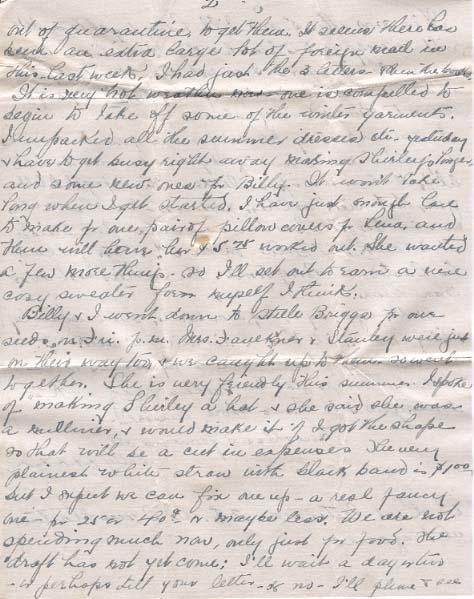 2.
out of quarantine, to get them. It seems there has
been an extra large lot of foreign mail in
this last week, I had just the 3 letters
It is very hot one is compelled to
begin to take off some of the winter garments.
I unpacked all the summer dresses etc. yesterday
& have to get busy right away making Shirley's longer
and some new ones for Billy. It won't take
long when I get started. I have just enough lace
to make for one pair of pillow covers for Lena, and
then will have her $ 5.00 worked out. She wanted
a few more things - so I'll set out to earn a nice
cosy sweater for myself I think.
Billy & I went down to Steele Briggs for our
seeds on Fri. p.m. Mrs. Faulkner & Stanley were just
on their way too, & we caught up to them so went
together. She is very friendly this summer. I spoke
of making Shirley a hat & she said she was
a milliner, & would make it if I got the shape
so that will be a cut in expenses. The very
plainest white straw with black band is $1.00
but I expect we can fix one up - a real fancy
one - for 25 or 40¢ or maybe less. We are not
spending much now, only just for food. The
draft has not yet come; I'll wait a day or two
- or perhaps till your letter - or no - I'll phone & see